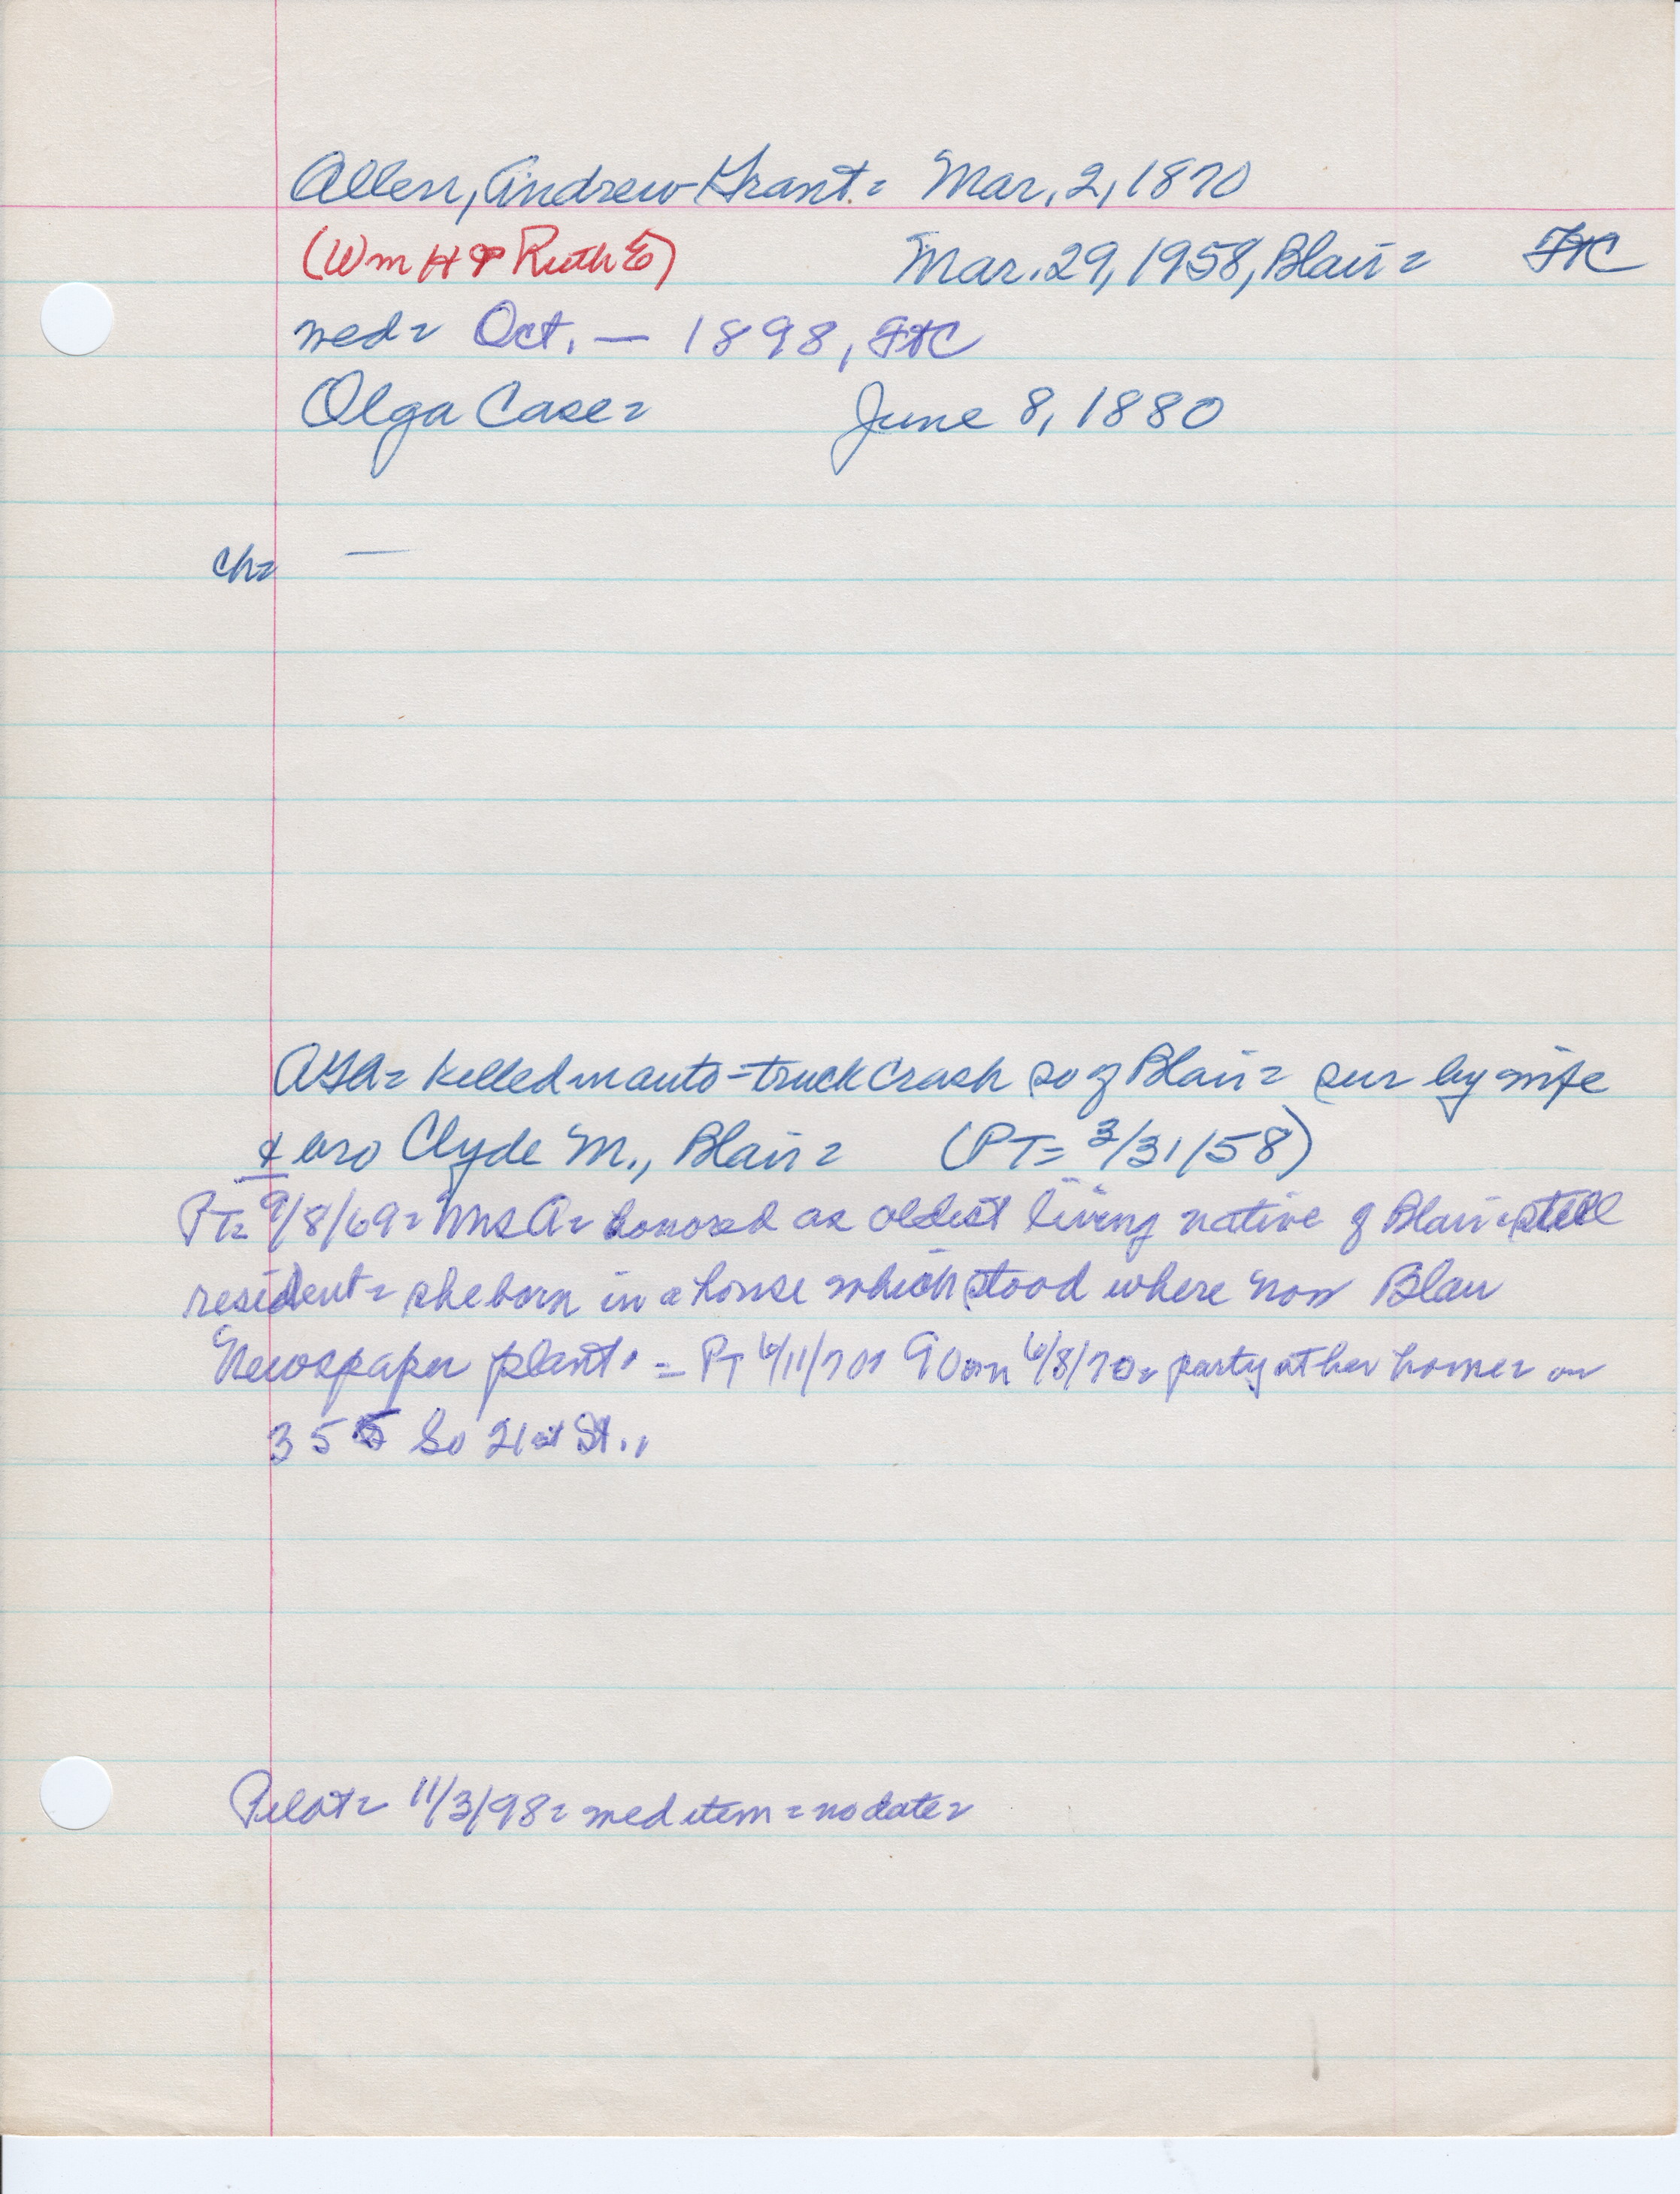 Allen, Andrew Grant = Mar. 2, 1870
(Wm H & Ruth E) Mar. 29, 1958, Blair = FtC
med = Oct. — 1898, FtC
Olga Case = June 8, 1880
ch = —
AGA = killed in auto-truck crash so of Blair = sur by wife
& bro Clyde M., Blair = (PT = 3/31/58)
PT = 9/8/69 = Mrs A = honored as oldest living native of Blair = still
resident = she born in a house which stood where now Blair
Newspaper plant. = PT 6/11/70 = 90 on 6/8/70 = party at her home = on
355 So 21st St.,
Pilot = 11/3/98 = med item = no date =